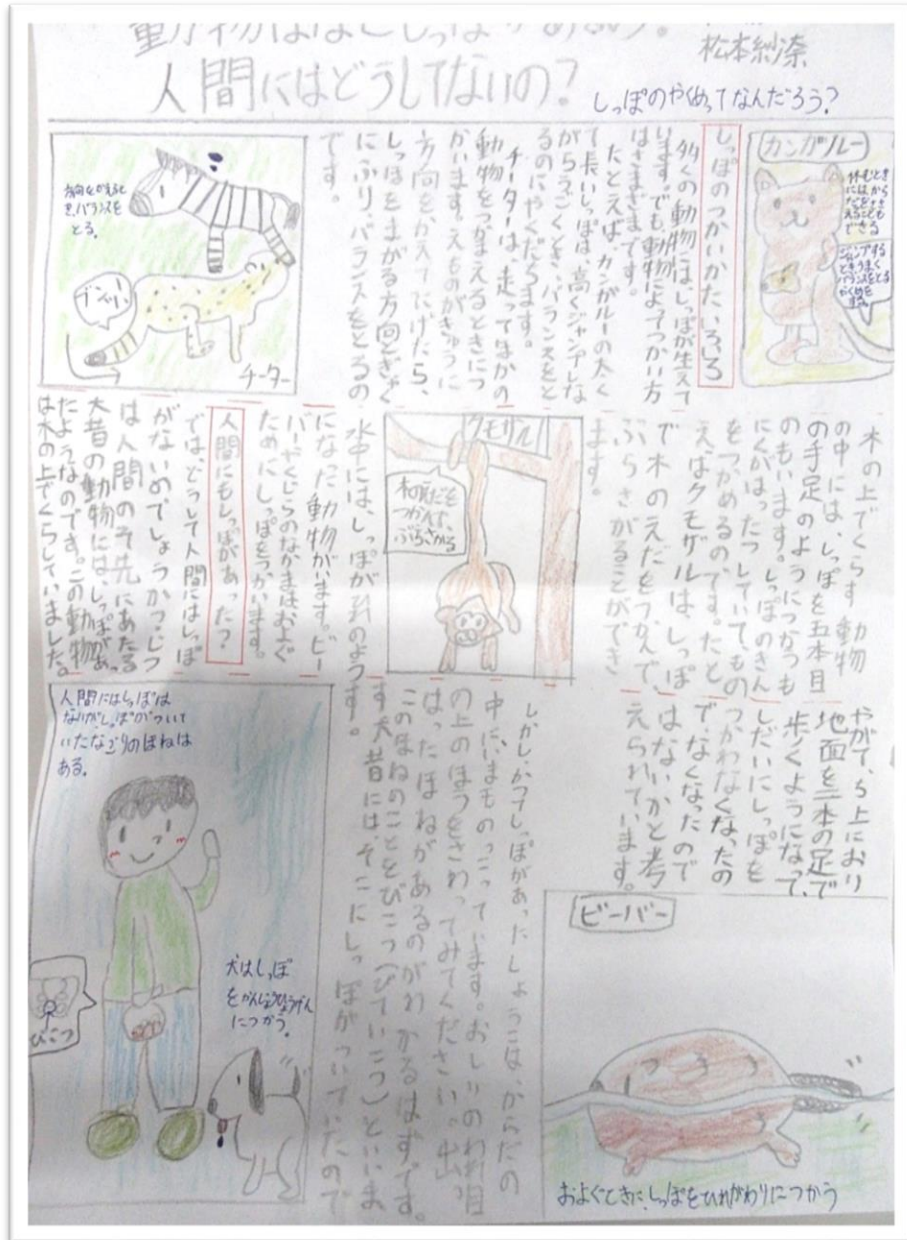 動物はほとしっぽがある。
人間にはどうしてないの?
松本紗奈
しっぽのやくめってなんだろう?
カンガルー
休むとき
にはから
だをささ
えることも
できる
ジャンプする
ときうまく
バランスをとる
やくめを
しっぽのつかいかたいろいろ
多くの動物には、しっぽが生えて
います。でも、動物によってつかい方
はさまざまです。
たとえば、カンガルーの太く
て長いしっぽは、高くジャンプしな
がらうごくとき、バランスをと
るのにやくだちます。
チーターは、走ってほかの
動物をつかまえるときにつ
かいます。えものがきゅうに
方向をかえてにげたら、
しっぽをまがる方向とぎゃく
にふり、バランスをとるの
です。
方向をかえると
き、バランスを
とる。
ブンッ
チーター
木の上でくらす動物
の中には、しっぽを五本目
の手足のようにつかうも
のもいます。しっぽのきん
にくがはったつしていて、もの
をつかめるのです。たと
えばクモザルは、しっぽ
で木のえだをつかんで、
ぶらさがることができ
ます。
クモザル
木の えだを
つかんで、
ぶらさがる
水中には、しっぽがひれのよう
になった動物がいます。ビー
バーやくじらのなかまはおよぐ
ためにしっぽをつかいます。
人間にもしっぽがあった?
では、どうして人間にはしっぽ
がないのでしょうか。じつ
は人間のそ先にあたる
大昔の動物には、しっぽがあっ
たようなのです。この動物
は木の上でくらしていました。
やがて、ち上におり
地面を二本の足で
歩くようになって、
しだいにしっぽを
つかわなくなったの
で、なくなったので
はないかと考
えられています。
しかし、かつてしっぽがあったしょうこは、からだの
中にいまものこっています。おしりのわれ目
の上のほうをさわってみてください。出っ
はったほねがあるのがわかるはずです。
このほねのことをびこつ(びていこつ)といいま
す大昔にはそこにしっぽがついていたので
す。
人間にはしっぽは
ないがしっぽがついて
いたなごりのほねは
ある。
びこつ
犬はしっぽ
をかんじょうひょうげん
につかう。
ビーバー
およぐときに、しっぽをひれがわりにつかう